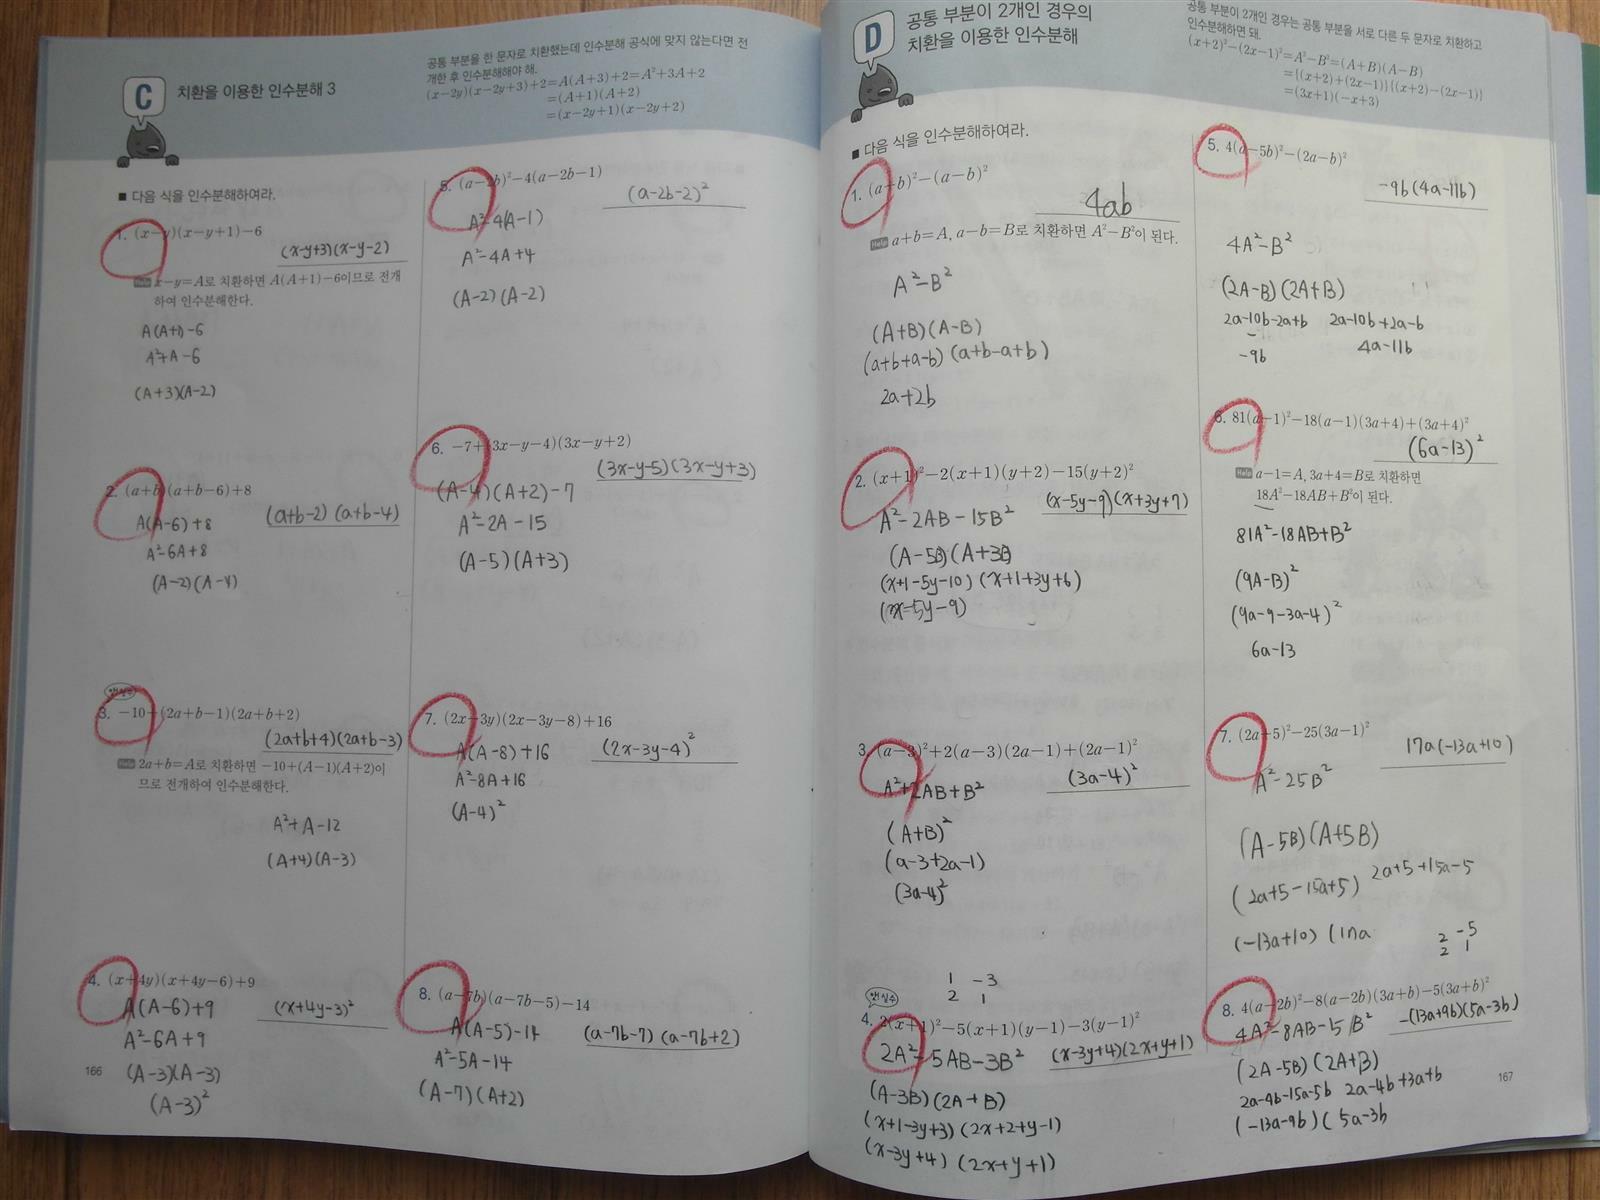 C
치환을 이용한 인수분해 3
공통 부분을 한 문자로 치환했는데 인수분해 공식에 맞지 않는다면 전
개한 후 인수분해해야 해.
(x-2y)(x-2y+3)+2=A(A+3)+2=A²+3A+2
=(A+1)(A+2)
=(x-2y+1)(x-2y+2)
■ 다음 식을 인수분해하여라.
1. (x-y)(x-y+1)-6
(x-y+3)(x-y-2)
Help x-y=A로 치환하면 A(A+1)-6이므로 전개
하여 인수분해한다.
A(A+1)-6
A²+A-6
(A+3)(A-2)
2. (a+b)(a+b-6)+8
(a+b-2)(a+b-4)
A(A-6)+8
A²-6A+8
(A-2)(A-4)
앗!실수
3. -10+(2a+b-1)(2a+b+2)
(2a+b+4)(2a+b-3)
Help 2a+b=A로 치환하면 -10+(A-1)(A+2)이
므로 전개하여 인수분해한다.
A²+A-12
(A+4)(A-3)
4. (x+4y)(x+4y-6)+9
A(A-6)+9
(x+4y-3)²
A²-6A+9
(A-3)(A-3)
(A-3)²
166
5. (a-2b)²-4(a-2b-1)
(a-2b-2)²
A²-4(A-1)
A²-4A+4
(A-2)(A-2)
6. -7+(3x-y-4)(3x-y+2)
(3x-y-5)(3x-y+3)
(A-4)(A+2)-7
A²-2A-15
(A-5)(A+3)
7. (2x-3y)(2x-3y-8)+16
A(A-8)+16
(2x-3y-4)²
A²-8A+16
(A-4)²
8. (a-7b)(a-7b-5)-14
A(A-5)-14
(a-7b-7)(a-7b+2)
A²-5A-14
(A-7)(A+2)
D
공통 부분이 2개인 경우의
치환을 이용한 인수분해
공통 부분이 2개인 경우는 공통 부분을 서로 다른 두 문자로 치환하고
인수분해하면 돼.
(x+2)²-(2x-1)²=A²-B²=(A+B)(A-B)
={(x+2)+(2x-1)}{(x+2)-(2x-1)}
=(3x+1)(-x+3)
■ 다음 식을 인수분해하여라.
1. (a+b)²-(a-b)²
4ab
Help a+b=A, a-b=B로 치환하면 A²-B²이 된다.
A²-B²
(A+B)(A-B)
(a+b+a-b)(a+b-a+b)
2a+2b
2. (x+1)²-2(x+1)(y+2)-15(y+2)²
(x-5y-9)(x+3y+7)
A²-2AB-15B²
(A-5B)(A+3B)
(x+1-5y-10)(x+1+3y+6)
(x-5y-9)
3. (a-3)²+2(a-3)(2a-1)+(2a-1)²
(3a-4)²
A²+2AB+B²
(A+B)²
(a-3+2a-1)
(3a-4)²
1 -3
2 1
앗!실수
4. 2(x+1)²-5(x+1)(y-1)-3(y-1)²
2A²-5AB-3B²
(x-3y+4)(2x+y+1)
(A-3B)(2A+B)
(x+1-3y+3)(2x+2+y-1)
(x-3y+4)(2x+y+1)
5. 4(a-5b)²-(2a-b)²
-9b(4a-11b)
4A²-B²
(2A-B)(2A+B)
2a-10b-2a+b 2a-10b+2a-b
-9b 4a-11b
6. 81(a-1)²-18(a-1)(3a+4)+(3a+4)²
(6a-13)²
Help a-1=A, 3a+4=B로 치환하면
18A²-18AB+B²이 된다.
81A²-18AB+B²
(9A-B)²
(9a-9-3a-4)²
6a-13
7. (2a+5)²-25(3a-1)²
17a(-13a+10)
A²-25B²
(A-5B)(A+5B)
(2a+5-15a+5) 2a+5+15a-5
(-13a+10)(17a
2 -5
2 1
8. 4(a-2b)²-8(a-2b)(3a+b)-5(3a+b)²
4A²-8AB-5B²
-(13a+9b)(5a-3b)
(2A-5B)(2A+B)
2a-4b-15a-5b 2a-4b+3a+b
(-13a-9b)(5a-3b
167